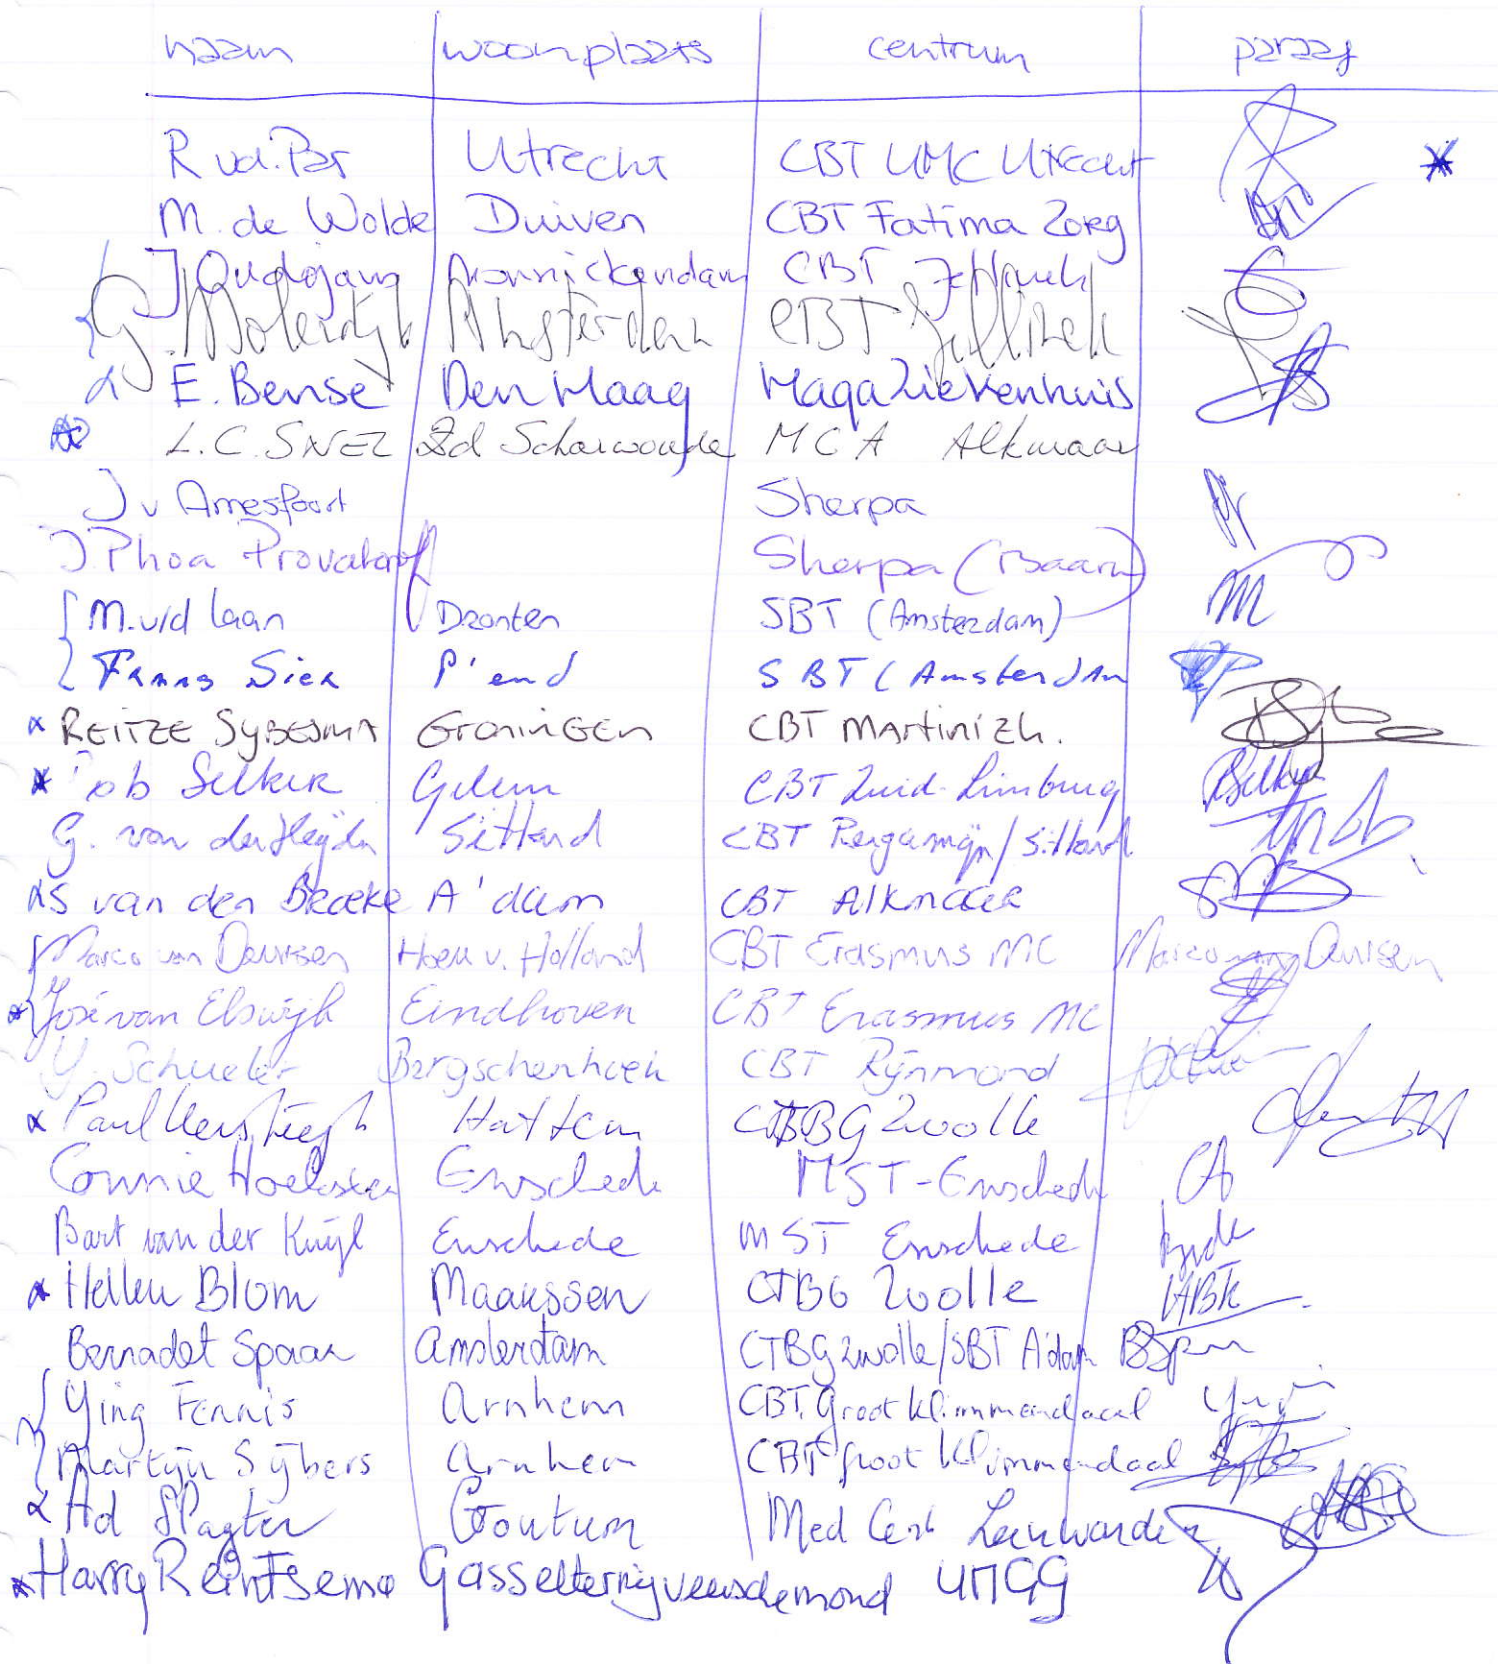 naam woonplaats centrum paraaf
R vd. Pas Utrecht CBT UMC Utrecht
M. de Wolde Duiven CBT Fatima Zorg
J Oudejans Monnickendam CBT Jellinek
G. Molendijk Amsterdam CBT Jellinek
E. Bense Den Haag Haga Ziekenhuis
L.C. SNEL Zd Scharwoude MCA Alkmaar
J v Amesfoort Sherpa
J. Phoa Sherpa (Baarn)
M. v/d Laan Dronten SBT (Amsterdam)
Frans Sier P'end SBT (Amsterdam
REITZE SYBESMA GroninGen CBT MArtiniZh.
Rob Selker Geleen CBT Zuid-Limburg
G. van der Heijden Sittard CBT Pergamijn/Sittard
S van den Broeke A'dam CBT Alkmaar
Marco van Deursen Hoek v. Holland CBT Erasmus MC Marco van Deursen
José van Elswijk Eindhoven CBT Erasmus MC
Y. Schueler Bergschenhoek CBT Rijnmond
Paul Versteegh Hattem CTBG Zwolle
Connie Hoekstra Enschede MST-Enschede
Bart van der Kuijl Enschede MST Enschede
Hellen Blom Maarssen CTBG Zwolle
Bernadet Spaan Amsterdam CTBG Zwolle/SBT A'dam
Ying Fennis Arnhem CBT. Groot Klimmendaal
Martijn Sijbers Arnhem CBT Groot Klimmendaal
Ad Goutum Med Cent Leeuwarden
Harry Reintsema Gasselternijveenschemond UMCG